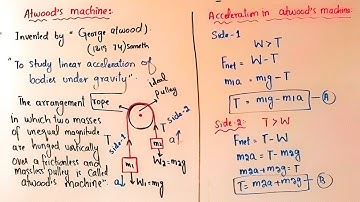 Atwood's machine:
Invented by "George atwood".
"To study linear acceleration of
bodies under gravity".
ideal
pulley
The arrangement
rope
in which two masses
of unequal magnitude
are hunged vatically
over a frictionless and
massless pulley is called
atwood's machine".
side-2
side-1
T
T
a↑
m1
m2
a↓
W1=m1g
W2=m2g
Acceleration in atwood's machine:
Side-1
W>T
Fnet = W-T
m1a = m1g-T
T = m1g-m1a - A
Side-2: T>W
Fnet = T-W
m2a = T-m2g
m2a+m2g=T
T=m2a+m2g - B